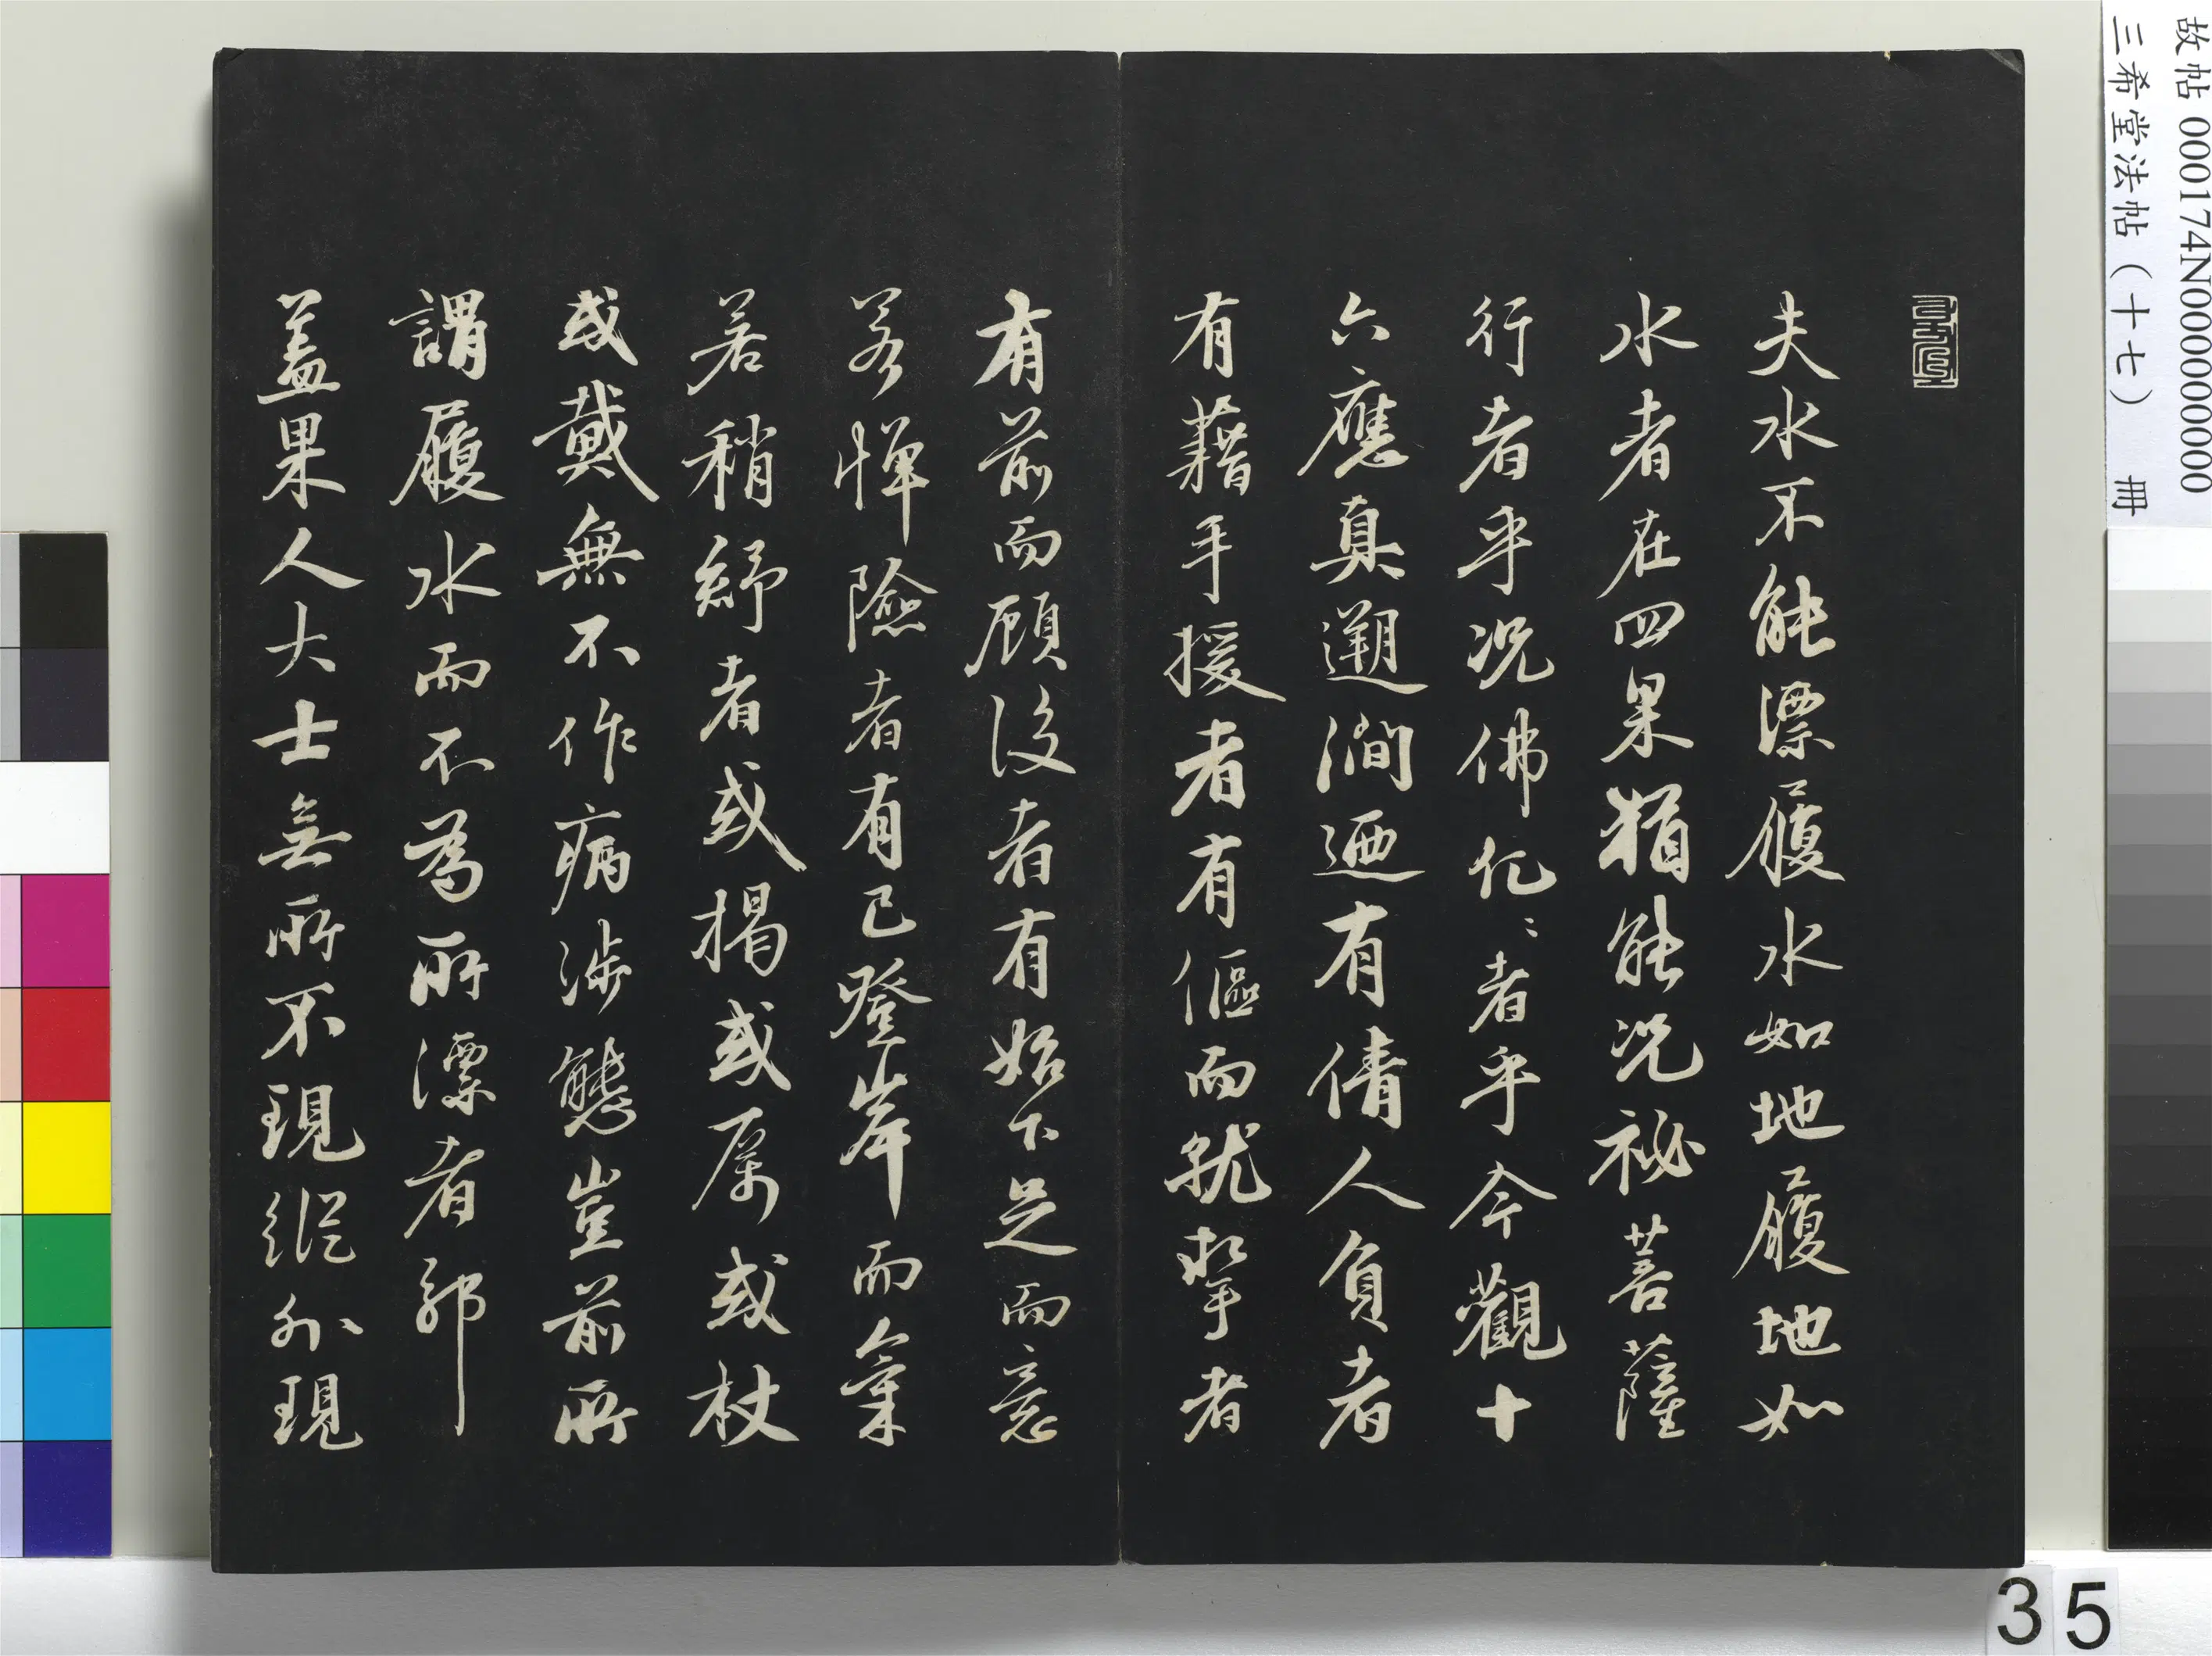 故帖 000174N000000000
三希堂法帖（十七） 冊
夫水不能漂履水如地履地如
水者在四果猶能況祕菩薩
行者乎況佛化〻者乎今觀十
六應真遡澗迺有倩人負者
有藉手援者有傴而就挈者
有前而顧後者有始下足而意
若憚險者有已登岸而氣
若稍紓者或揭或厲或杖
或戴無不作病涉態豈前所
謂履水而不為所漂者耶
蓋果人大士無所不現縱外現
35